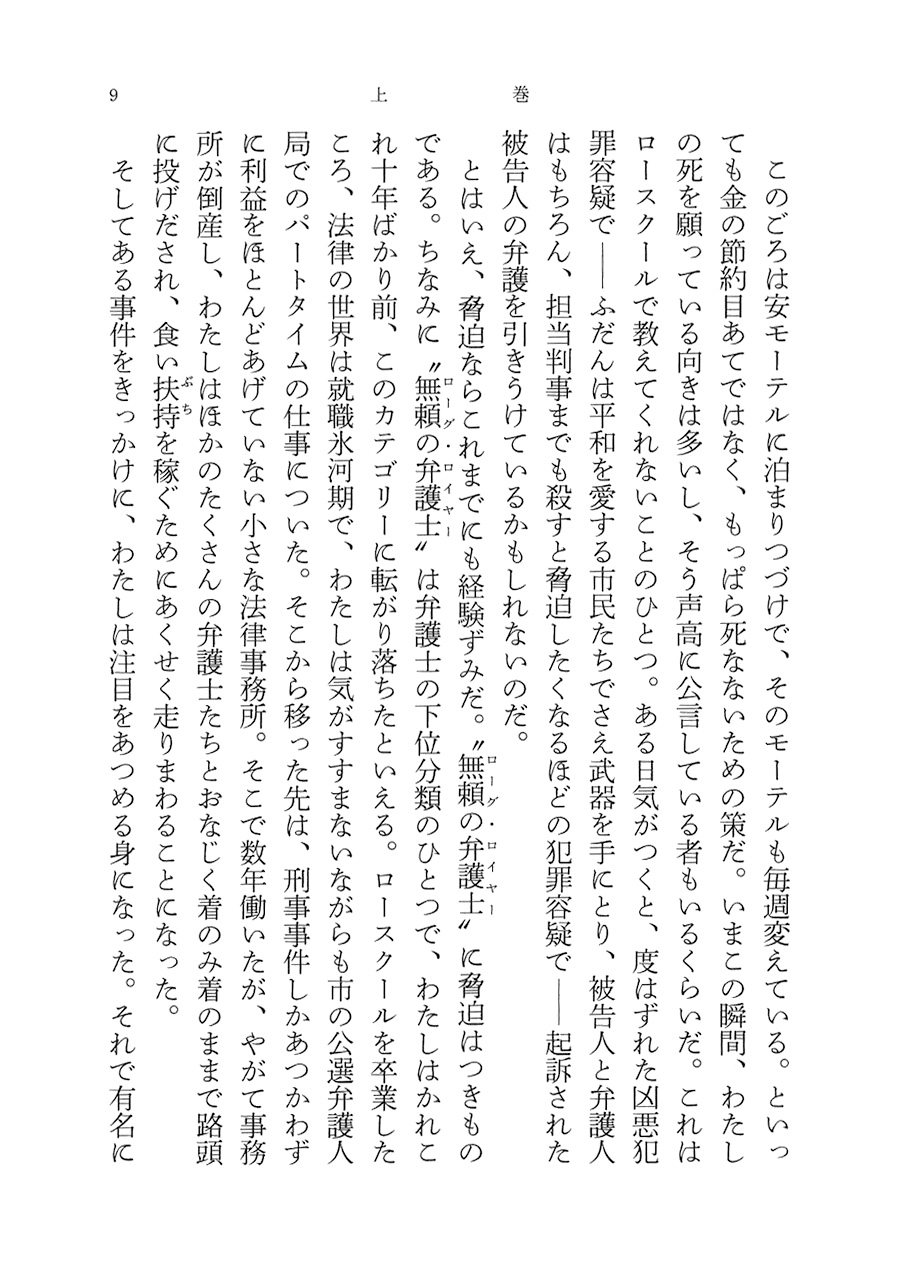 9 上巻
このごろは安モーテルに泊まりつづけで、そのモーテルも毎週変えている。といっ
ても金の節約目あてではなく、もっぱら死なないための策だ。いまこの瞬間、わたし
の死を願っている向きは多いし、そう声高に公言している者もいるくらいだ。これは
ロースクールで教えてくれないことのひとつ。ある日気がつくと、度はずれた凶悪犯
罪容疑で——ふだんは平和を愛する市民たちでさえ武器を手にとり、被告人と弁護人
はもちろん、担当判事までも殺すと脅迫したくなるほどの犯罪容疑で——起訴された
被告人の弁護を引きうけているかもしれないのだ。
とはいえ、脅迫ならこれまでにも経験ずみだ。〝無頼の弁護士〟に脅迫はつきもの
ローグ・ロイヤー
である。ちなみに〝無頼の弁護士〟は弁護士の下位分類のひとつで、わたしはかれこ
ローグ・ロイヤー
れ十年ばかり前、このカテゴリーに転がり落ちたといえる。ロースクールを卒業した
ころ、法律の世界は就職氷河期で、わたしは気がすすまないながらも市の公選弁護人
局でのパートタイムの仕事についた。そこから移った先は、刑事事件しかあつかわず
に利益をほとんどあげていない小さな法律事務所。そこで数年働いたが、やがて事務
所が倒産し、わたしはほかのたくさんの弁護士たちとおなじく着のみ着のままで路頭
に投げだされ、食い扶持を稼ぐためにあくせく走りまわることになった。
ぶち
そしてある事件をきっかけに、わたしは注目をあつめる身になった。それで有名に